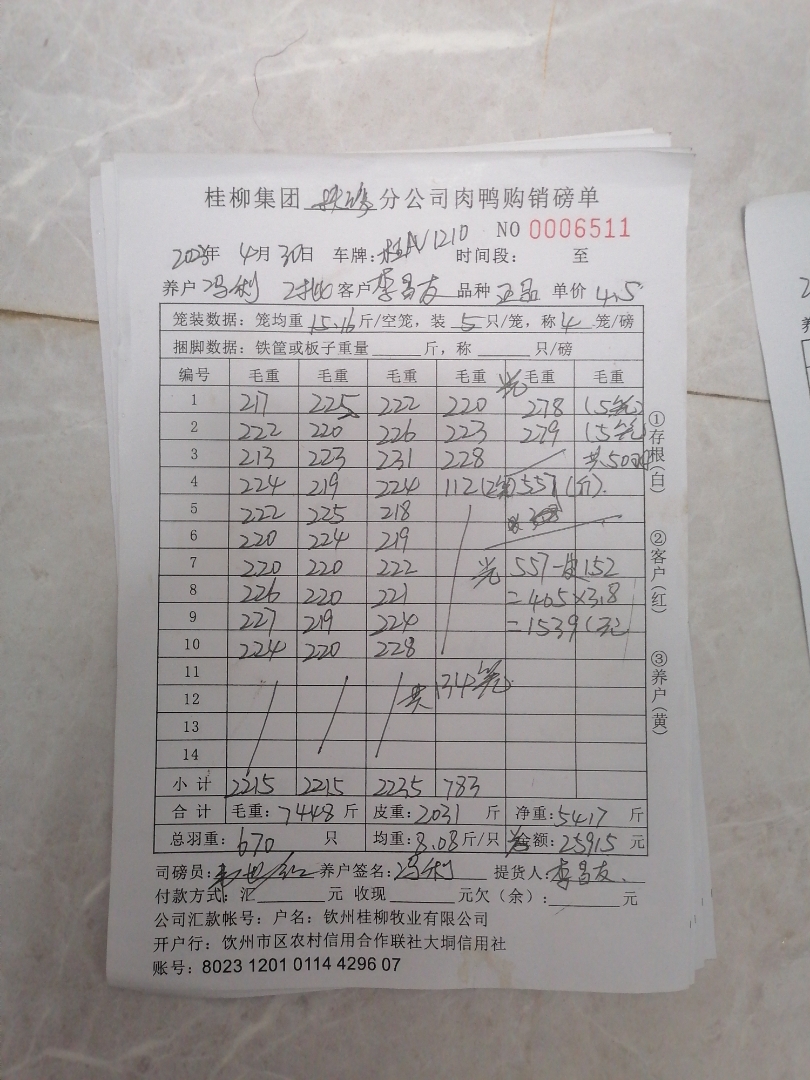 桂柳集团 分公司肉鸭购销磅单
NO 0006511
年 4月30日 车牌: 1210 时间段: 至
养户 冯利 2批 客户 李昌友 品种 正品 单价 4.5
笼装数据: 笼均重 15.16 斤/空笼, 装 5 只/笼, 称 4 笼/磅
捆脚数据: 铁筐或板子重量 斤, 称 只/磅
编号 毛重 毛重 毛重 毛重 毛重 毛重
1 217 225 222 220 278 (5笼)
2 222 220 226 223 279 (5笼)
3 213 223 231 228 共50only
4 224 219 224 112(2笼) 557(斤).
5 222 225 218
6 220 224 219
7 220 220 222 557-皮152
8 226 220 221 =405×3.8
9 227 219 224 =1539(元
10 224 220 228
11
12 共134笼
13
14
小计 2215 2215 2235 783
合计 毛重: 7448 斤 皮重: 2031 斤 净重: 5417 斤
总羽重: 670 只 均重: 8.08 斤/只 金额: 25915 元
司磅员: 养户签名: 冯利 提货人: 李昌友
付款方式: 汇 元 收现 元欠(余): 元
公司汇款帐号: 户名: 钦州桂柳牧业有限公司
开户行: 饮州市区农村信用合作联社大垌信用社
账号: 8023 1201 0114 4296 07
①存根(白)
②客户(红)
③养户(黄)